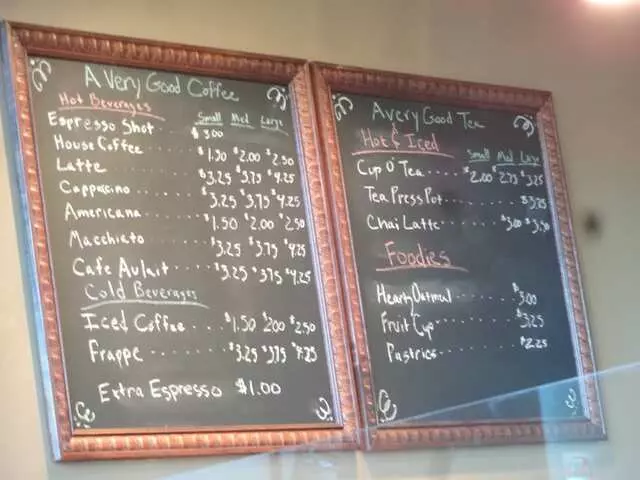 A Very Good Coffee
Hot Beverages
Small Med Large
Espresso Shot $3.00
House Coffee $1.50 $2.00 $2.50
Latte $3.25 $3.75 $4.25
Cappucino $3.25 $3.75 $4.25
Americana $1.50 $2.00 $2.50
Macchiato $3.25 $3.75 $4.25
Cafe Aulait $3.25 $3.75 $4.25
Cold Beverages
Iced Coffee $1.50 $2.00 $2.50
Frappe $3.25 $3.75 $4.25
Extra Espresso $1.00
A Very Good Tea
Hot & Iced
Small Med Large
Cup O' Tea $2.00 $2.75 $3.25
Tea Press Pot $3.75
Chai Latte $3.00 $3.50
Foodies
Heart Oatmeal $3.00
Fruit Cup $3.25
Pastries $2.25